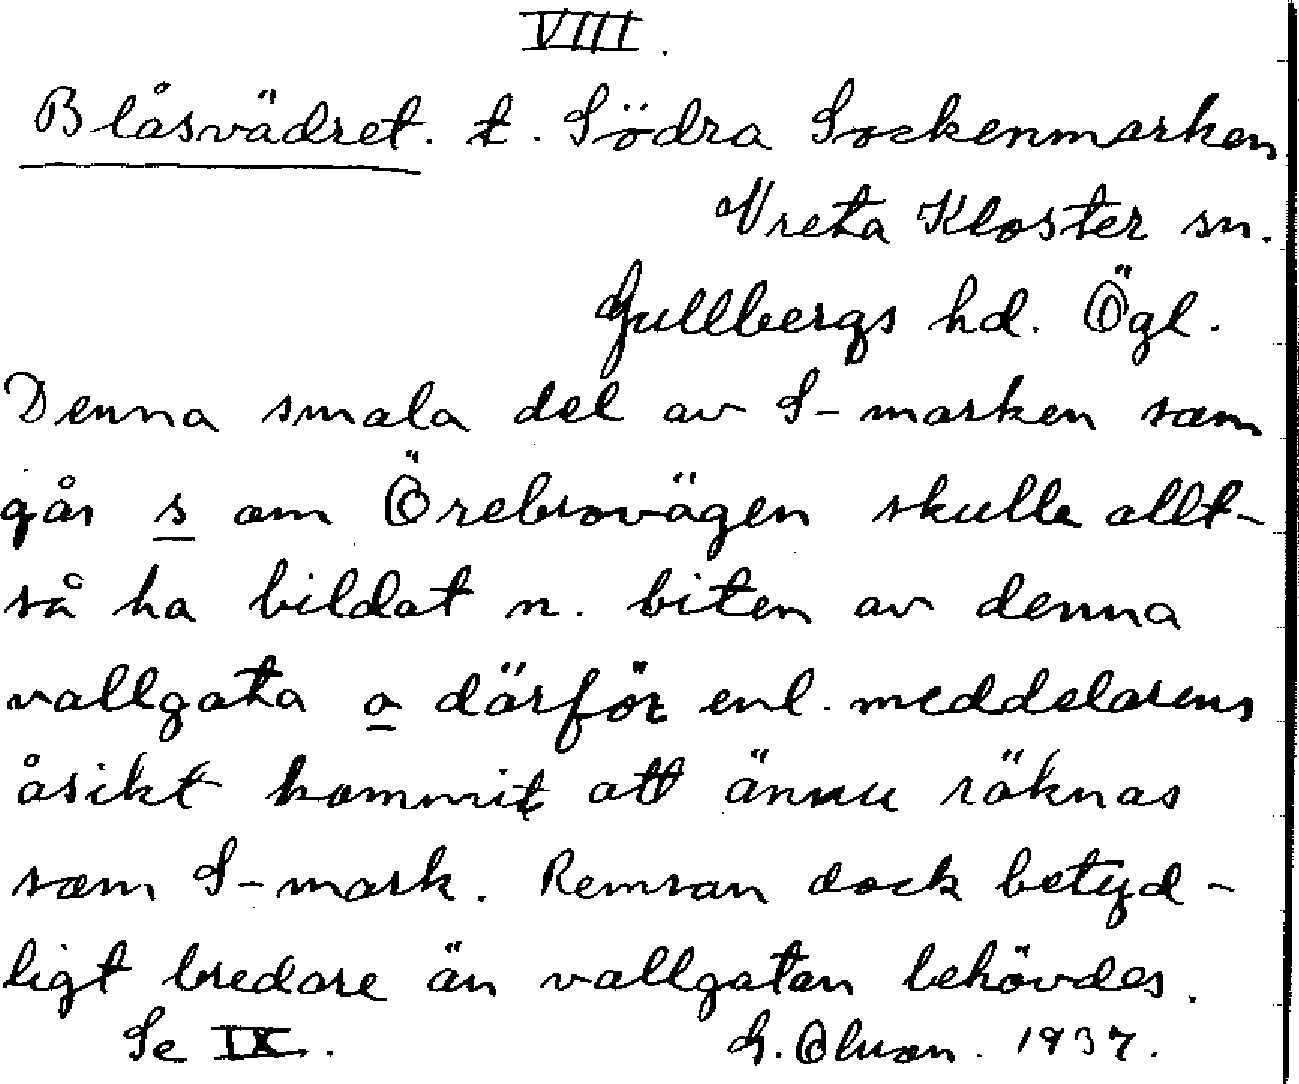 VIII.
Blåsvädret. t. Södra Sockenmarken
Vreta Kloster sn.
Gullbergs hd. Ögl.
Denna smala del av S-marken som
går s om Örebrovägen skulle allt-
så ha bildat n. biten av denna
vallgata o därför enl. meddelarens
åsikt kommit att ännu räknas
som S-mark. Remsan dock betyd-
ligt bredare än vallgatan behövdes.
Se IX.
G. Olsson. 1937.